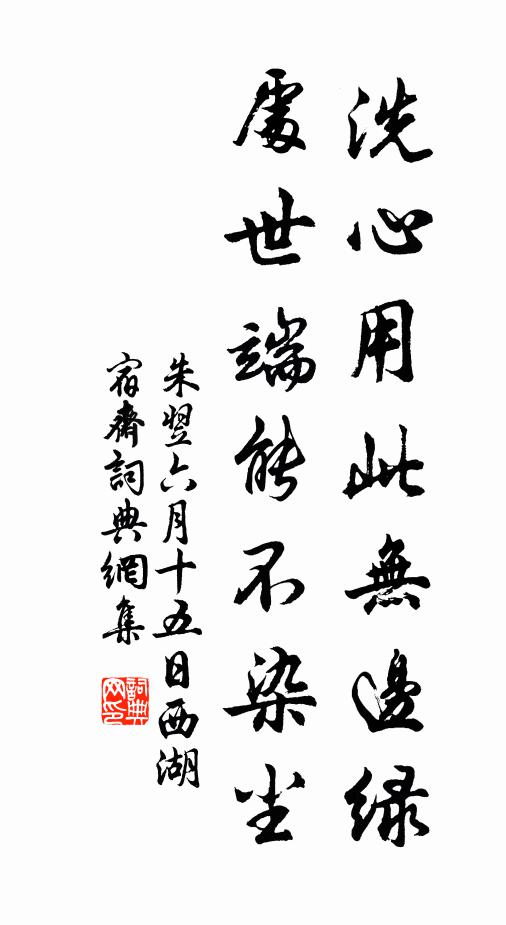 洗心用此無邊綠
處世端能不染尘
朱翌六月十五日西湖
宿齋詞典網集
詞典网印